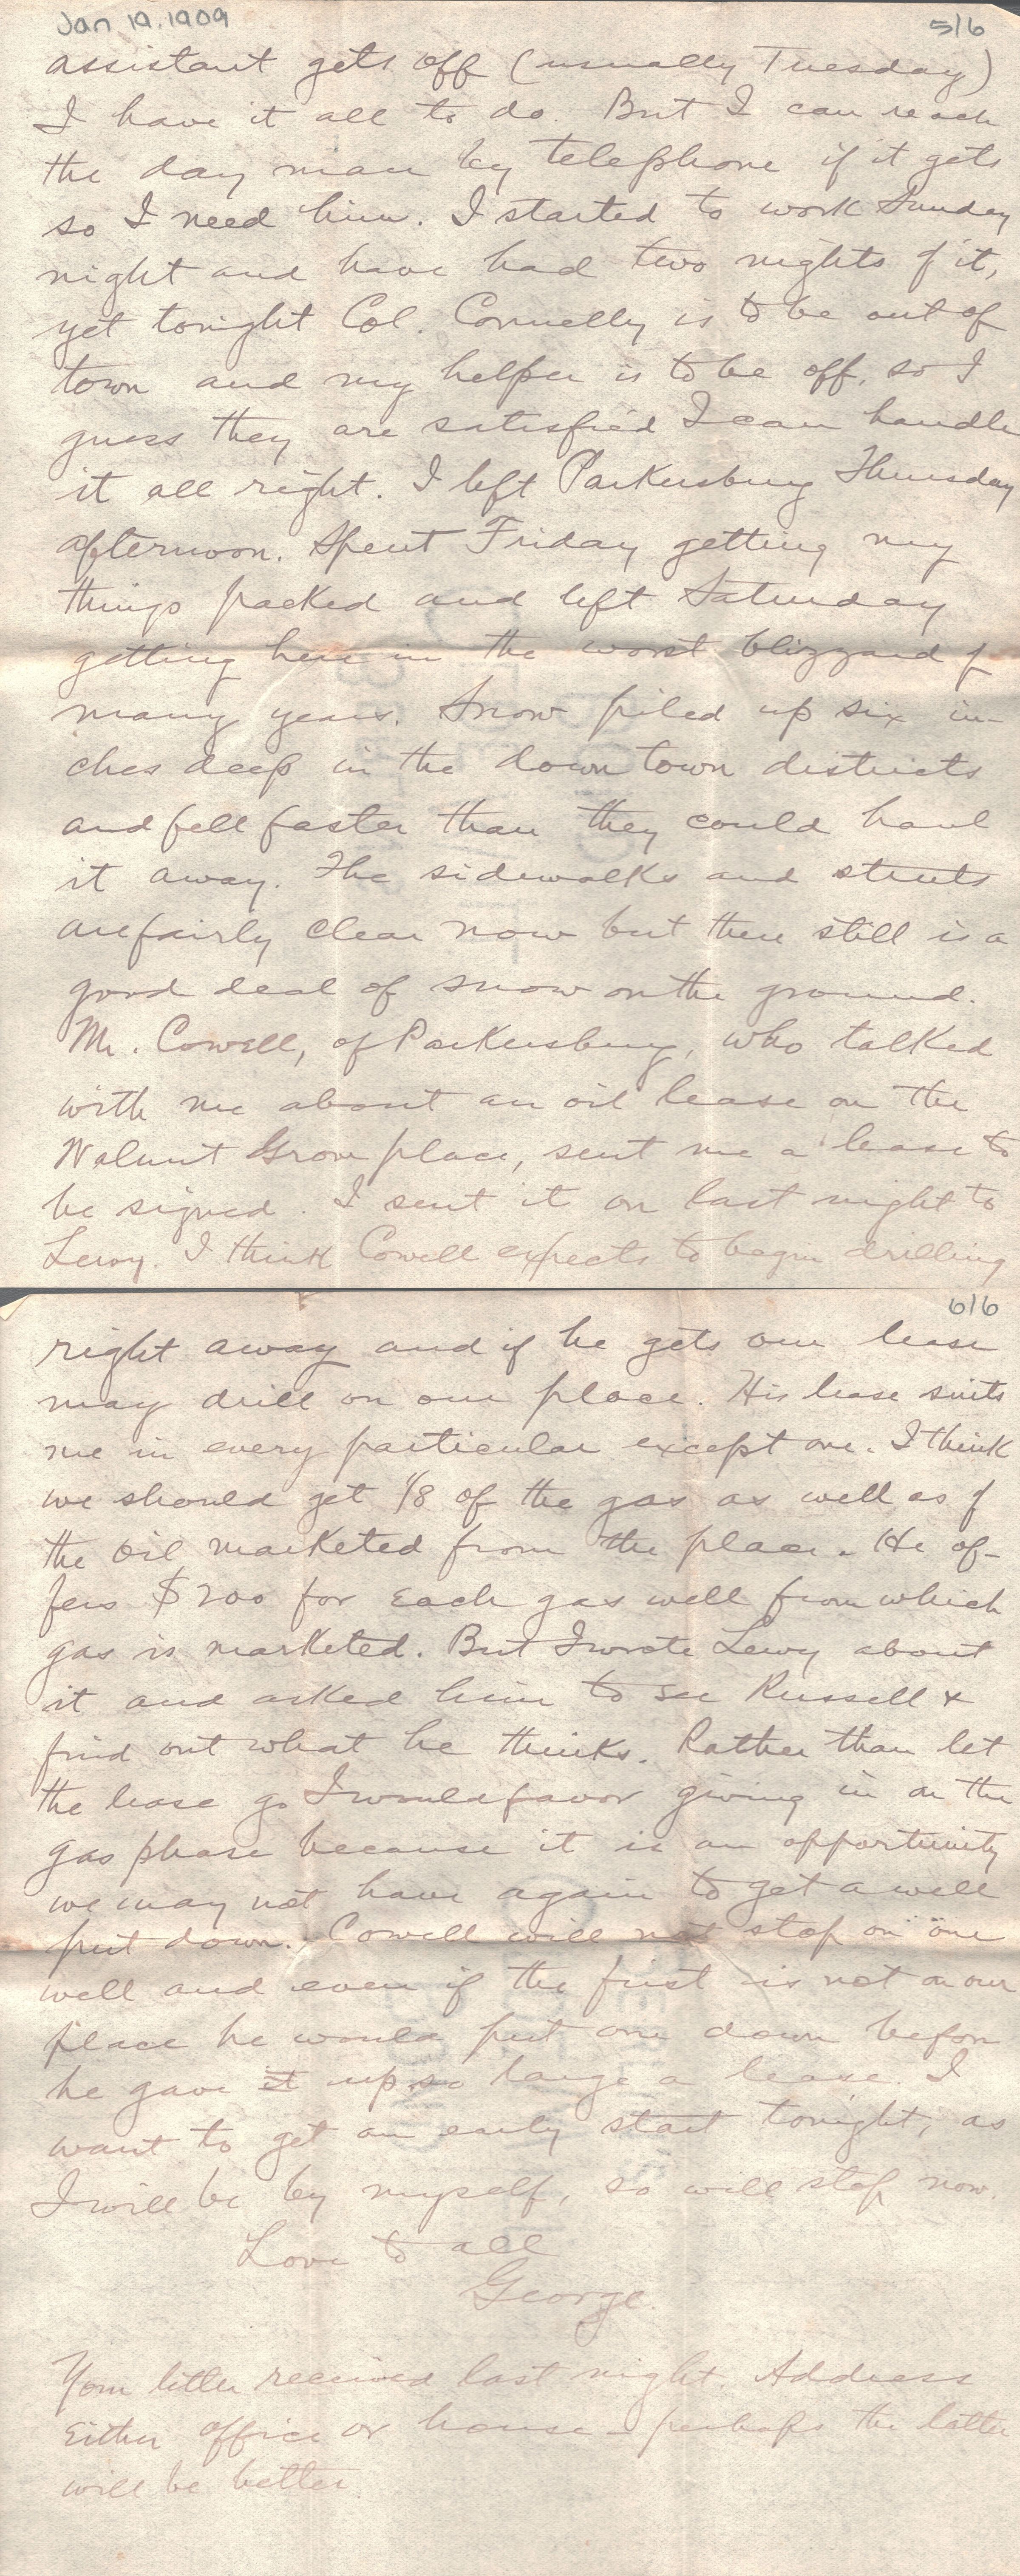 Jan 19.1909
5/6
assistant gets off (usually Tuesday)
I have it all to do. But I can reach
the day man by telephone if it gets
so I need him. I started to work Sunday
night and have had two nights of it,
yet tonight Col. Connelly is to be out of
town and my helper is to be off, so I
guess they are satisfied I can handle
it all right. I left Parkersburg Thursday
afternoon. Spent Friday getting my
things packed and left Saturday
getting here in the worst blizzard of
many years. Snow piled up six in-
ches deep in the down town districts
and fell faster than they could haul
it away. The sidewalks and streets
are fairly clear now but there still is a
good deal of snow on the ground.
Mr. Cowell, of Parkersburg, who talked
with me about an oil lease on the
Walnut Grove place, sent me a lease to
be signed. I sent it on last night to
Leroy. I think Cowell expects to begin drilling
6/6
right away and if he gets our lease
may drill on our place. His lease suits
me in every particular except one. I think
we should get 1/8 of the gas as well as of
the oil marketed from the place. He of-
fers $200 for each gas well from which
gas is marketed. But I wrote Leroy about
it and asked him to see Russell &
find out what he thinks. Rather than let
the lease go I would favor giving in on the
gas phase because it is an opportunity
we may not have again to get a well
put down. Cowell will not stop on one
well and even if the first is not on our
place he would put one down before
he gave it up so large a lease. I
want to get an early start tonight, as
I will be by myself, so will stop now.
Love to all
George.
Your letter received last night. Address
Either office or house - perhaps the latter
will be better